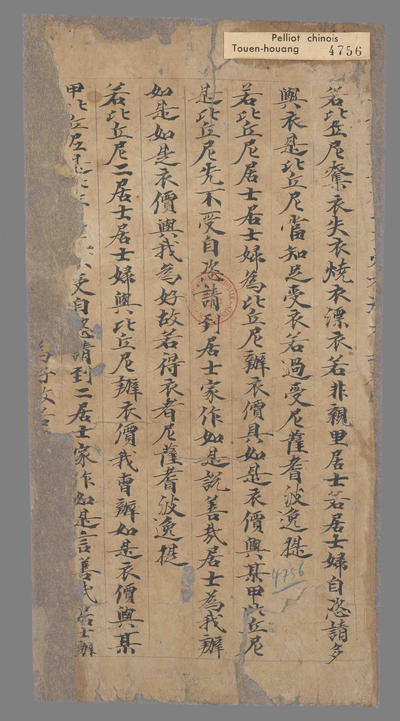 Pelliot chinois
Touen-houang 4756
若比丘尼奪衣失衣燒衣漂衣若非親里居士若居士婦自恣請多
與衣是比丘尼當知足受衣若過受尼薩耆波逸提
若比丘尼居士居士婦為比丘尼辦衣價具如是衣價與某甲比丘尼
是比丘尼先不受自恣請到居士家作如是說善哉居士為我辦
如是如是衣價與我為好故若得衣者尼薩耆波逸提
若比丘尼二居士居士婦與比丘尼辦衣價我曹辦如是衣價與某
甲比丘尼是受自恣請到二居士家作如是言善哉居士辦
好故若
4756